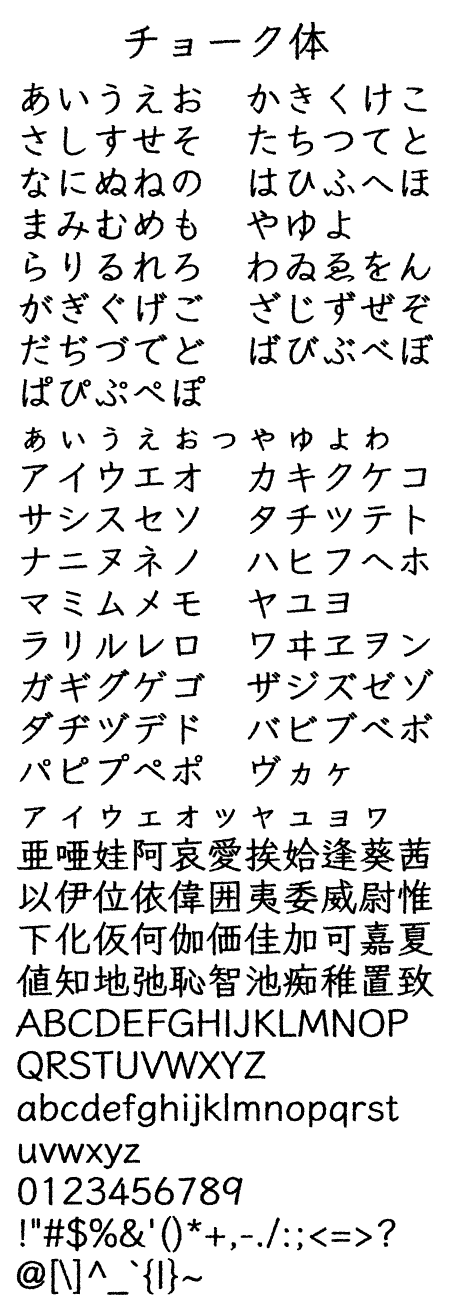 チョーク体
あいうえお　かきくけこ
さしすせそ　たちつてと
なにぬねの　はひふへほ
まみむめも　やゆよ
らりるれろ　わゐゑをん
がぎぐげご　ざじずぜぞ
だぢづでど　ばびぶべぼ
ぱぴぷぺぽ
ぁぃぅぇぉっゃゅょゎ
アイウエオ　カキクケコ
サシスセソ　タチツテト
ナニヌネノ　ハヒフヘホ
マミムメモ　ヤユヨ
ラリルレロ　ワヰヱヲン
ガギグゲゴ　ザジズゼゾ
ダヂヅデド　バビブベボ
パピプペポ　ヴヵヶ
ァィゥェォッャュョヮ
亜唖娃阿哀愛挨姶逢葵茜
以伊位依偉囲夷委威尉惟
下化仮何伽価佳加可嘉夏
値知地弛恥智池痴稚置致
ABCDEFGHIJKLMNOP
QRSTUVWXYZ
abcdefghijklmnopqrst
uvwxyz
0123456789
!"#$%&'()*+,-./:;<=>?
@[\]^_`{|}~